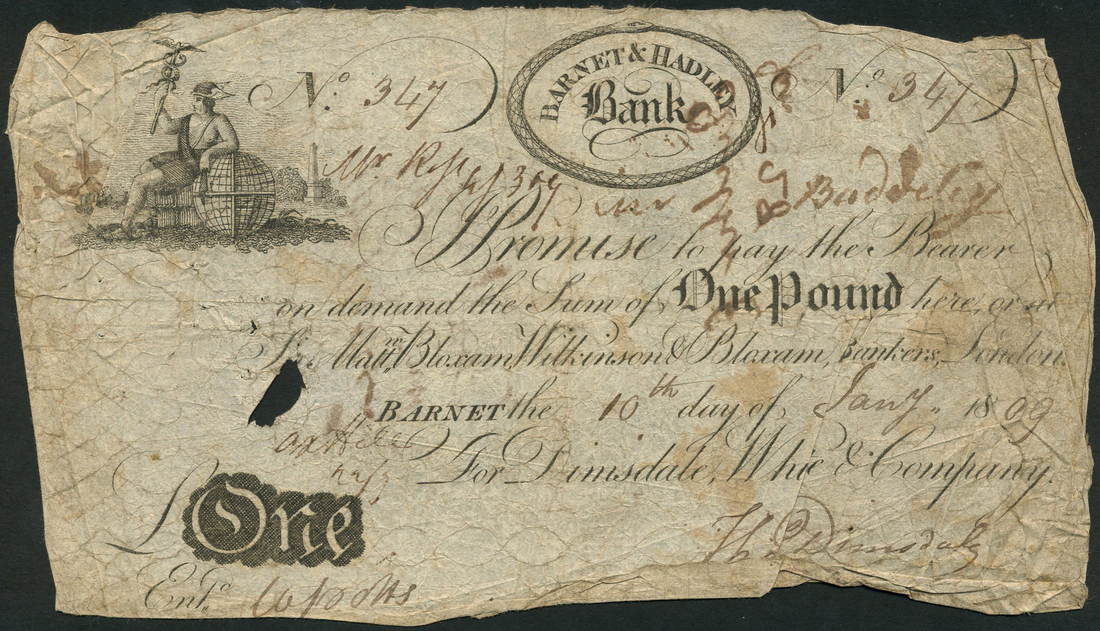 BARNET & HADLEY
Bank
No. 347
No. 347
Buddeley
I Promise to pay the Bearer
on demand the Sum of One Pound here, or at
Sr. Mattw. Bloxam, Wilkinson & Bloxam, Bankers, London.
BARNET the 10th day of Jany. 1809
For Dimsdale, Whic & Company.
£ One
Entd.